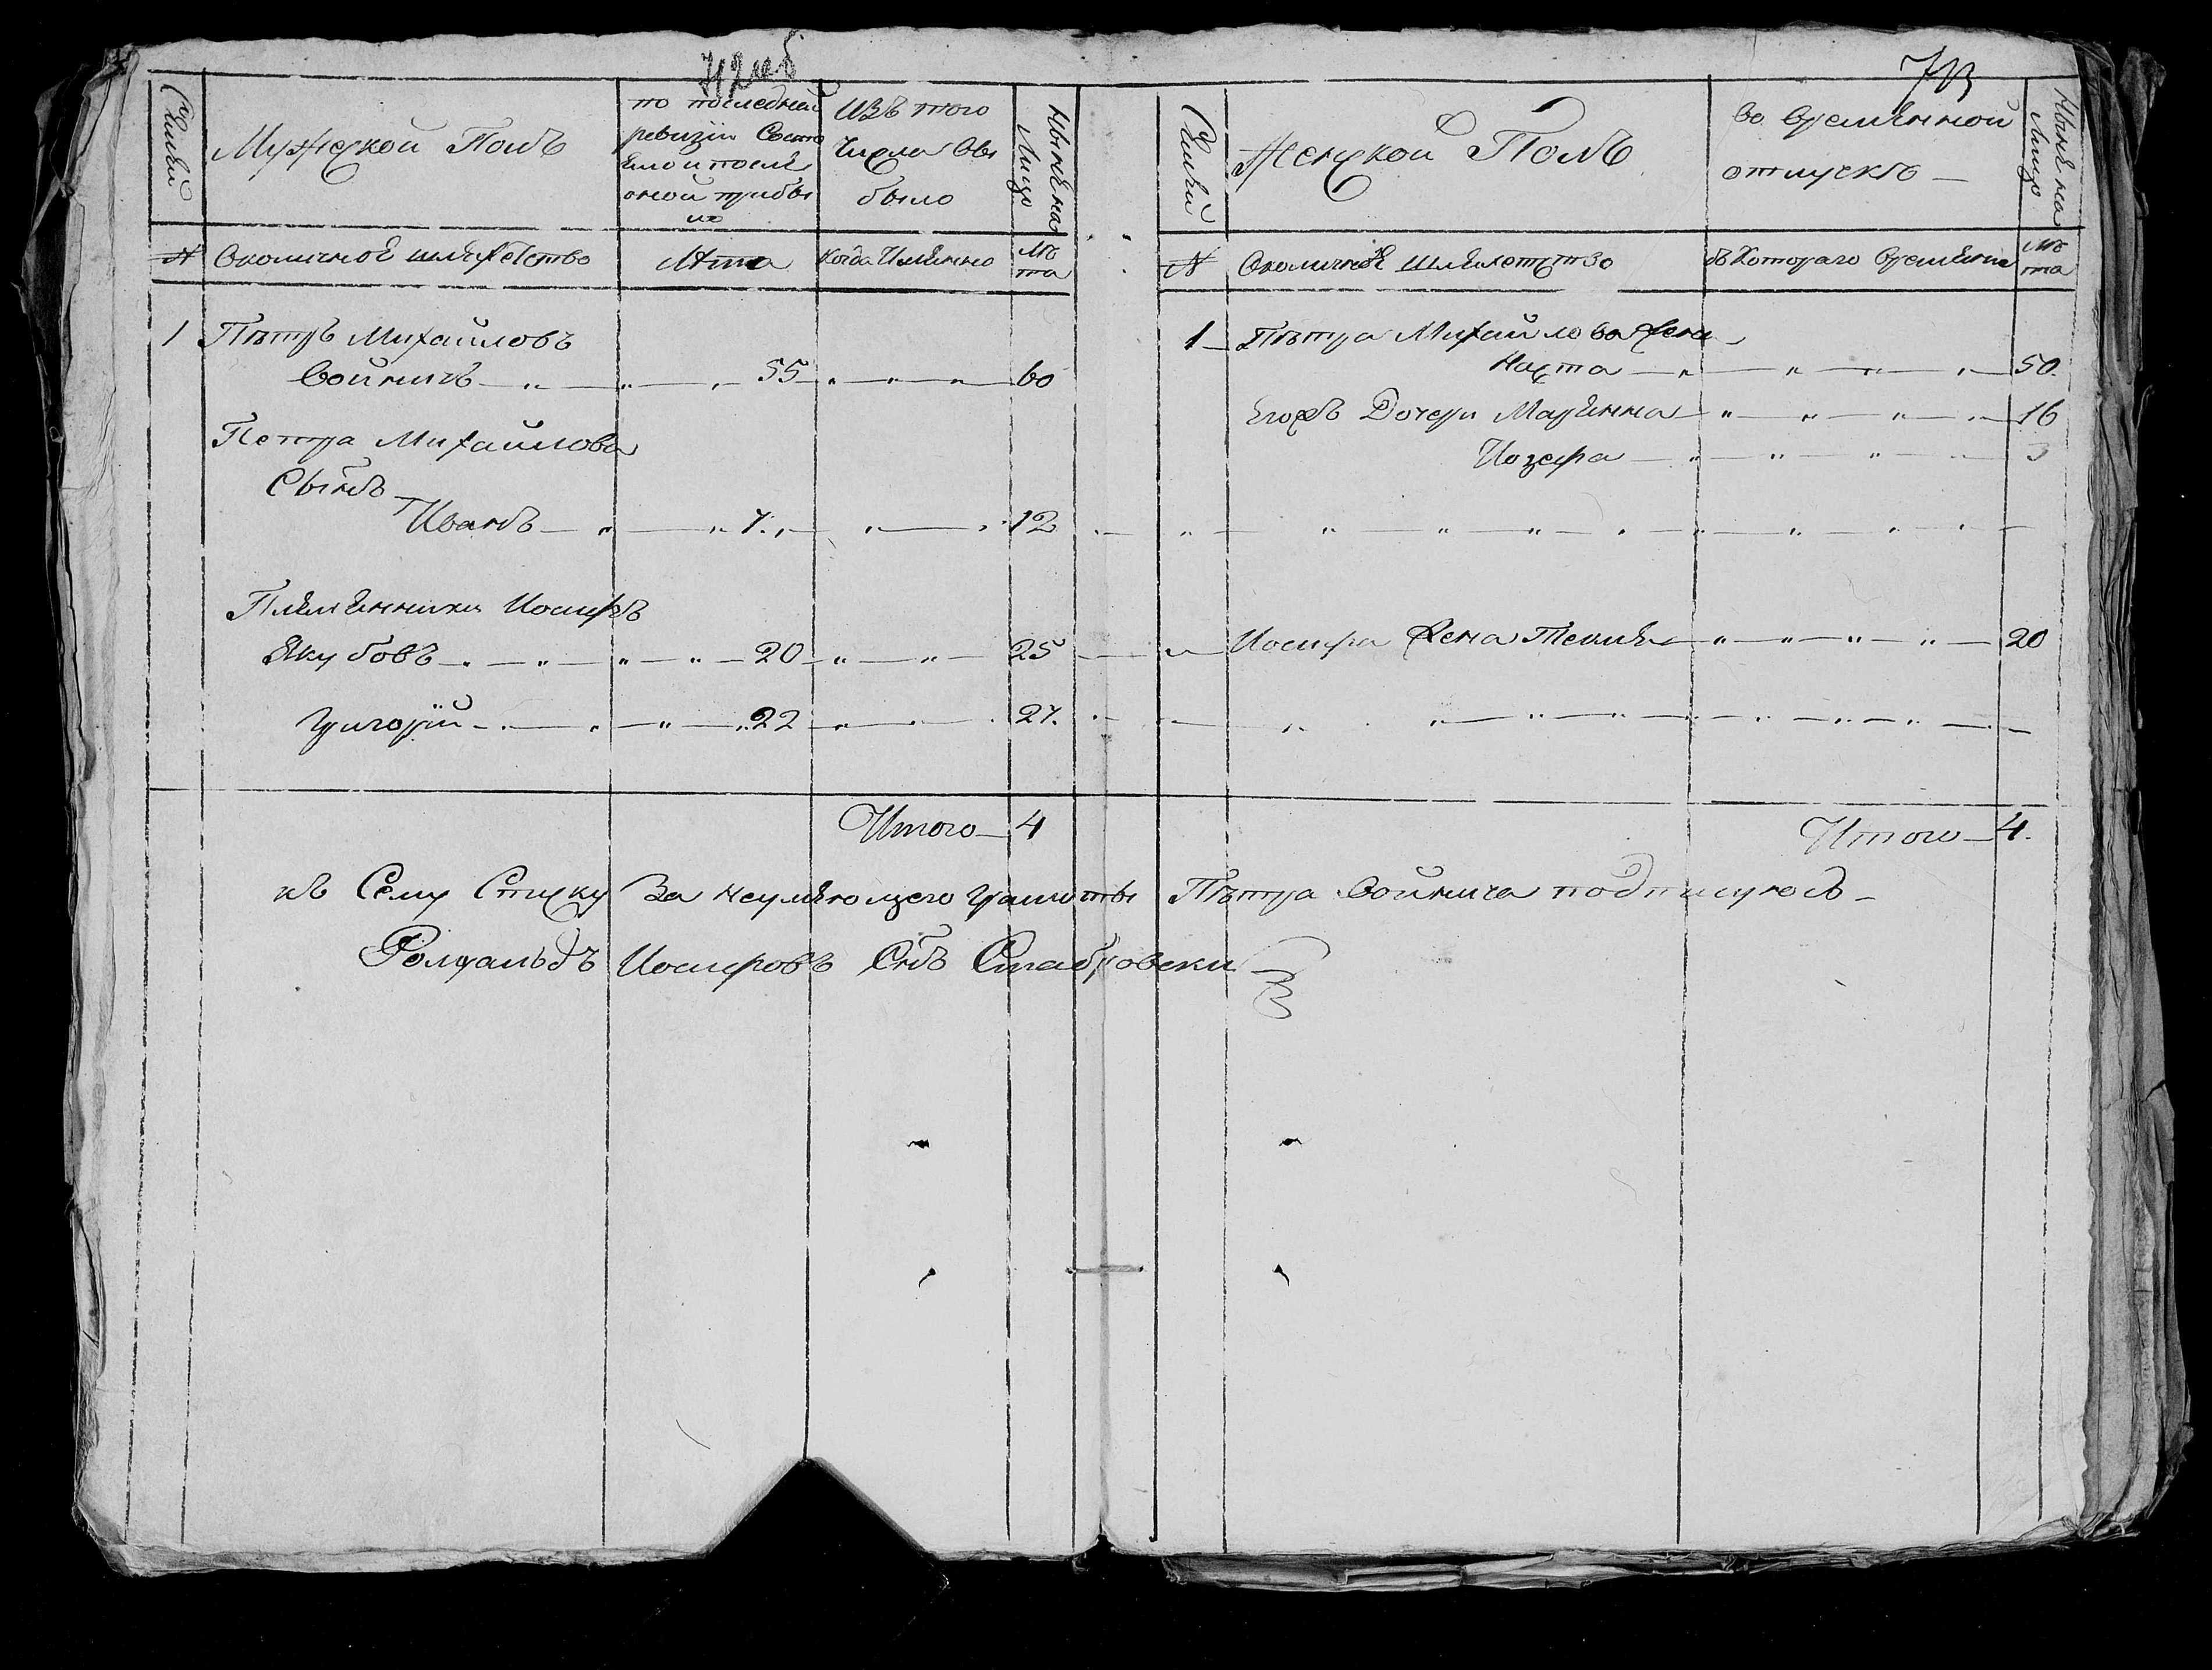 73
Семей
Мужеской Полъ
по последней
ревизіи Состо
яло и после
оной прибы
ло
Изъ того
Числа вы
было
Ныне на
Лицо
№
Околичное шляхетство
Лета
Когда Имянно
Ле
та
1 Пётръ Михайловъ
Войничъ 55 60
Петра Михайлова
Сынъ
Иванъ 7 12
Племянники Иосифъ
Якубовъ 20 25
Григорій 22 27.
Итого 4
Семей
Женской Полъ
во временной
отлучкѣ
Ныне на
Лицо
№
Околичное Шляхетство
съ Котораго времяни
Ле
та
1 Пётра Михайлова жена
Наста 50.
Егожъ Дочери Марянна 16
Иозефа 3
Иосифа жена Текля 20
Итого 4.
къ Сему Списку За неумеющего грамоты Пётра Войнича подписуюсъ
Иосифовъ Снъ Стабровски